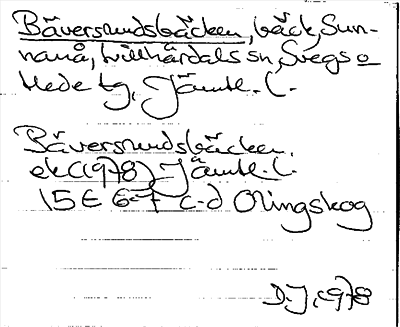 Bäversundsbäcken, bäck, Sun-
nanå, Lillhärdals sn, Svegs o
Hede tg, Jämtl. l.
Bäversundsbäcken,
ek (1978) Jämtl. l.
15 E 6-7 c-d Olingskog
D.J. 1978